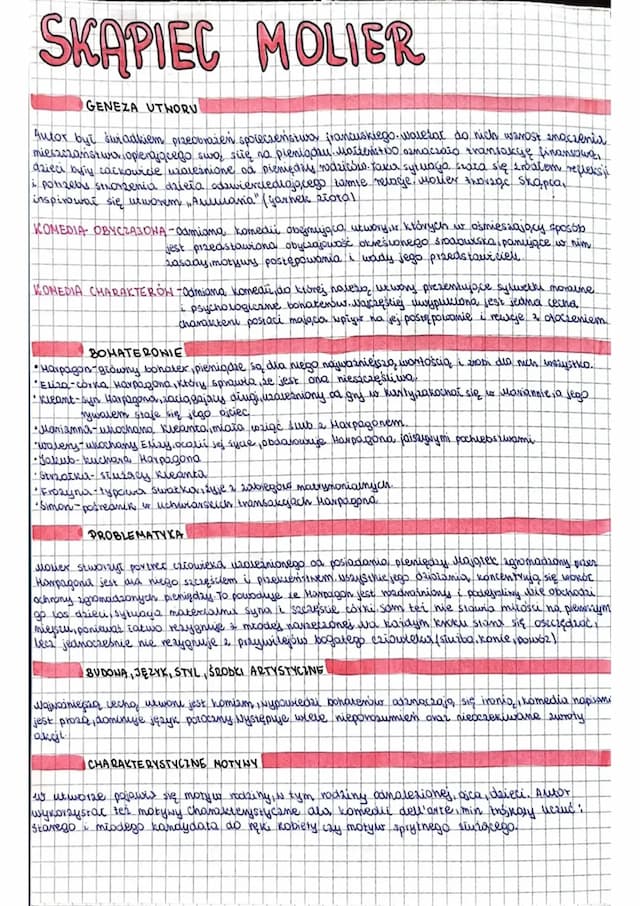 SKĄPIEC MOLIER
GENEZA UTWORU
Autor był świadkiem przeobrażeń społeczeństwa francuskiego. Należał do nich wzrost znaczenia
mieszczaństwa, opierającego swoją siłę na pieniądzu. Małżeństwo oznaczało transakcję finansową,
dzieci były całkowicie uzależnione od pieniędzy rodziców. Taka sytuacja stała się źródłem refleksji
i potrzeby stworzenia dzieła odzwierciedlającego tamte relacje. Molier tworząc Skąpca,
inspirował się utworem „Aulularia" (garnek złota)
KOMEDIA OBYCZAJOWA - odmiana komedii obejmująca utwory, w których w ośmieszający sposób
jest przedstawiona obyczajowość określonego środowiska, panujące w nim
zasady, motywy postępowania i wady jego przedstawicieli.
KOMEDIA CHARAKTERÓW - odmiana komedii, do której należą utwory prezentujące sylwetki moralne
i psychologiczne bohaterów. Najczęściej uwypuklona jest jedna cecha
charakteru postaci mająca wpływ na jej postępowanie i relacje z otoczeniem
BOHATEROWIE
• Harpagon - główny bohater, pieniądze są dla niego najważniejszą wartością i zrobi dla nich wszystko.
• Eliza - córka Harpagona, który sprawia, że jest ona nieszczęśliwa.
• Kleant - syn Harpagona, zaciągający długi, uzależniony od gry w karty, zakochał się w Mariannie, a jego
rywalem staje się jego ojciec.
• Marianna - ukochana Kleanta, miała wziąć ślub z Harpagonem.
• Walery - ukochany Elizy, ocalił jej życie, obdarowuje Harpagona fałszywymi pochlebstwami
• Jakub - kucharz Harpagona
• Strzałka - służący Kleanta
• Frozyna - typowa swatka, żyje z zabiegów matrymonialnych.
• Simon - pośrednik w lichwiarskich transakcjach Harpagona
PROBLEMATYKA
Molier stworzył portret człowieka uzależnionego od posiadania pieniędzy. Majątek zgromadzony przez
Harpagona jest dla niego szczęściem i przekleństwem. Wszystkie jego działania, koncentrują się wokół
ochrony zgromadzonych pieniędzy. To powoduje że Harpagon jest rozdrażniony i podejrzliwy. Nie obchodzi
go los dzieci, sytuacja materialna syna i szczęście córki. Sam też nie stawia miłości na pierwszym
miejscu, ponieważ łatwo rezygnuje z młodej narzeczonej. Na każdym kroku stara się oszczędzać,
lecz jednocześnie nie rezygnuje z przywilejów bogatego człowieka (służba, konie, powóz)
BUDOWA, JĘZYK, STYL, ŚRODKI ARTYSTYCZNE
Najważniejszą cechą utworu jest komizm, wypowiedzi bohaterów odznaczają się ironią, komedia napisana
jest prozą, dominuje język potoczny. Występuje wiele nieporozumień oraz nieoczekiwane zwroty
akcji.
CHARAKTERYSTYCZNE MOTYWY
W utworze pojawia się motyw rodziny, w tym rodziny odnalezionej, ojca, dzieci. Autor
wykorzystał też motywy charakterystyczne dla komedii dell'arte, min. trójkąty uczuć:
starego i młodego kandydata do ręki kobiety czy motyw sprytnego służącego.